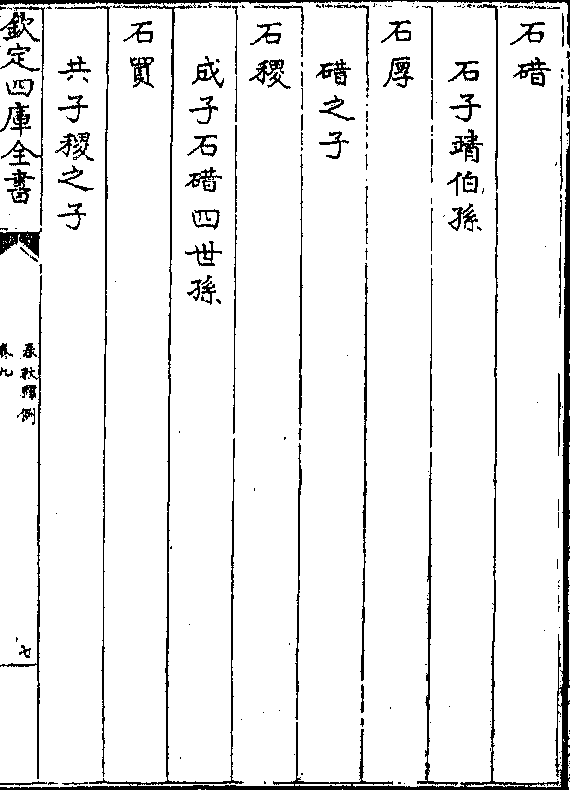 石碏
石子靖伯孫
石厚
碏之子
石稷
成子石碏四世孫
石買
共子稷之子
欽定四庫全書
春秋釋例
卷九
七